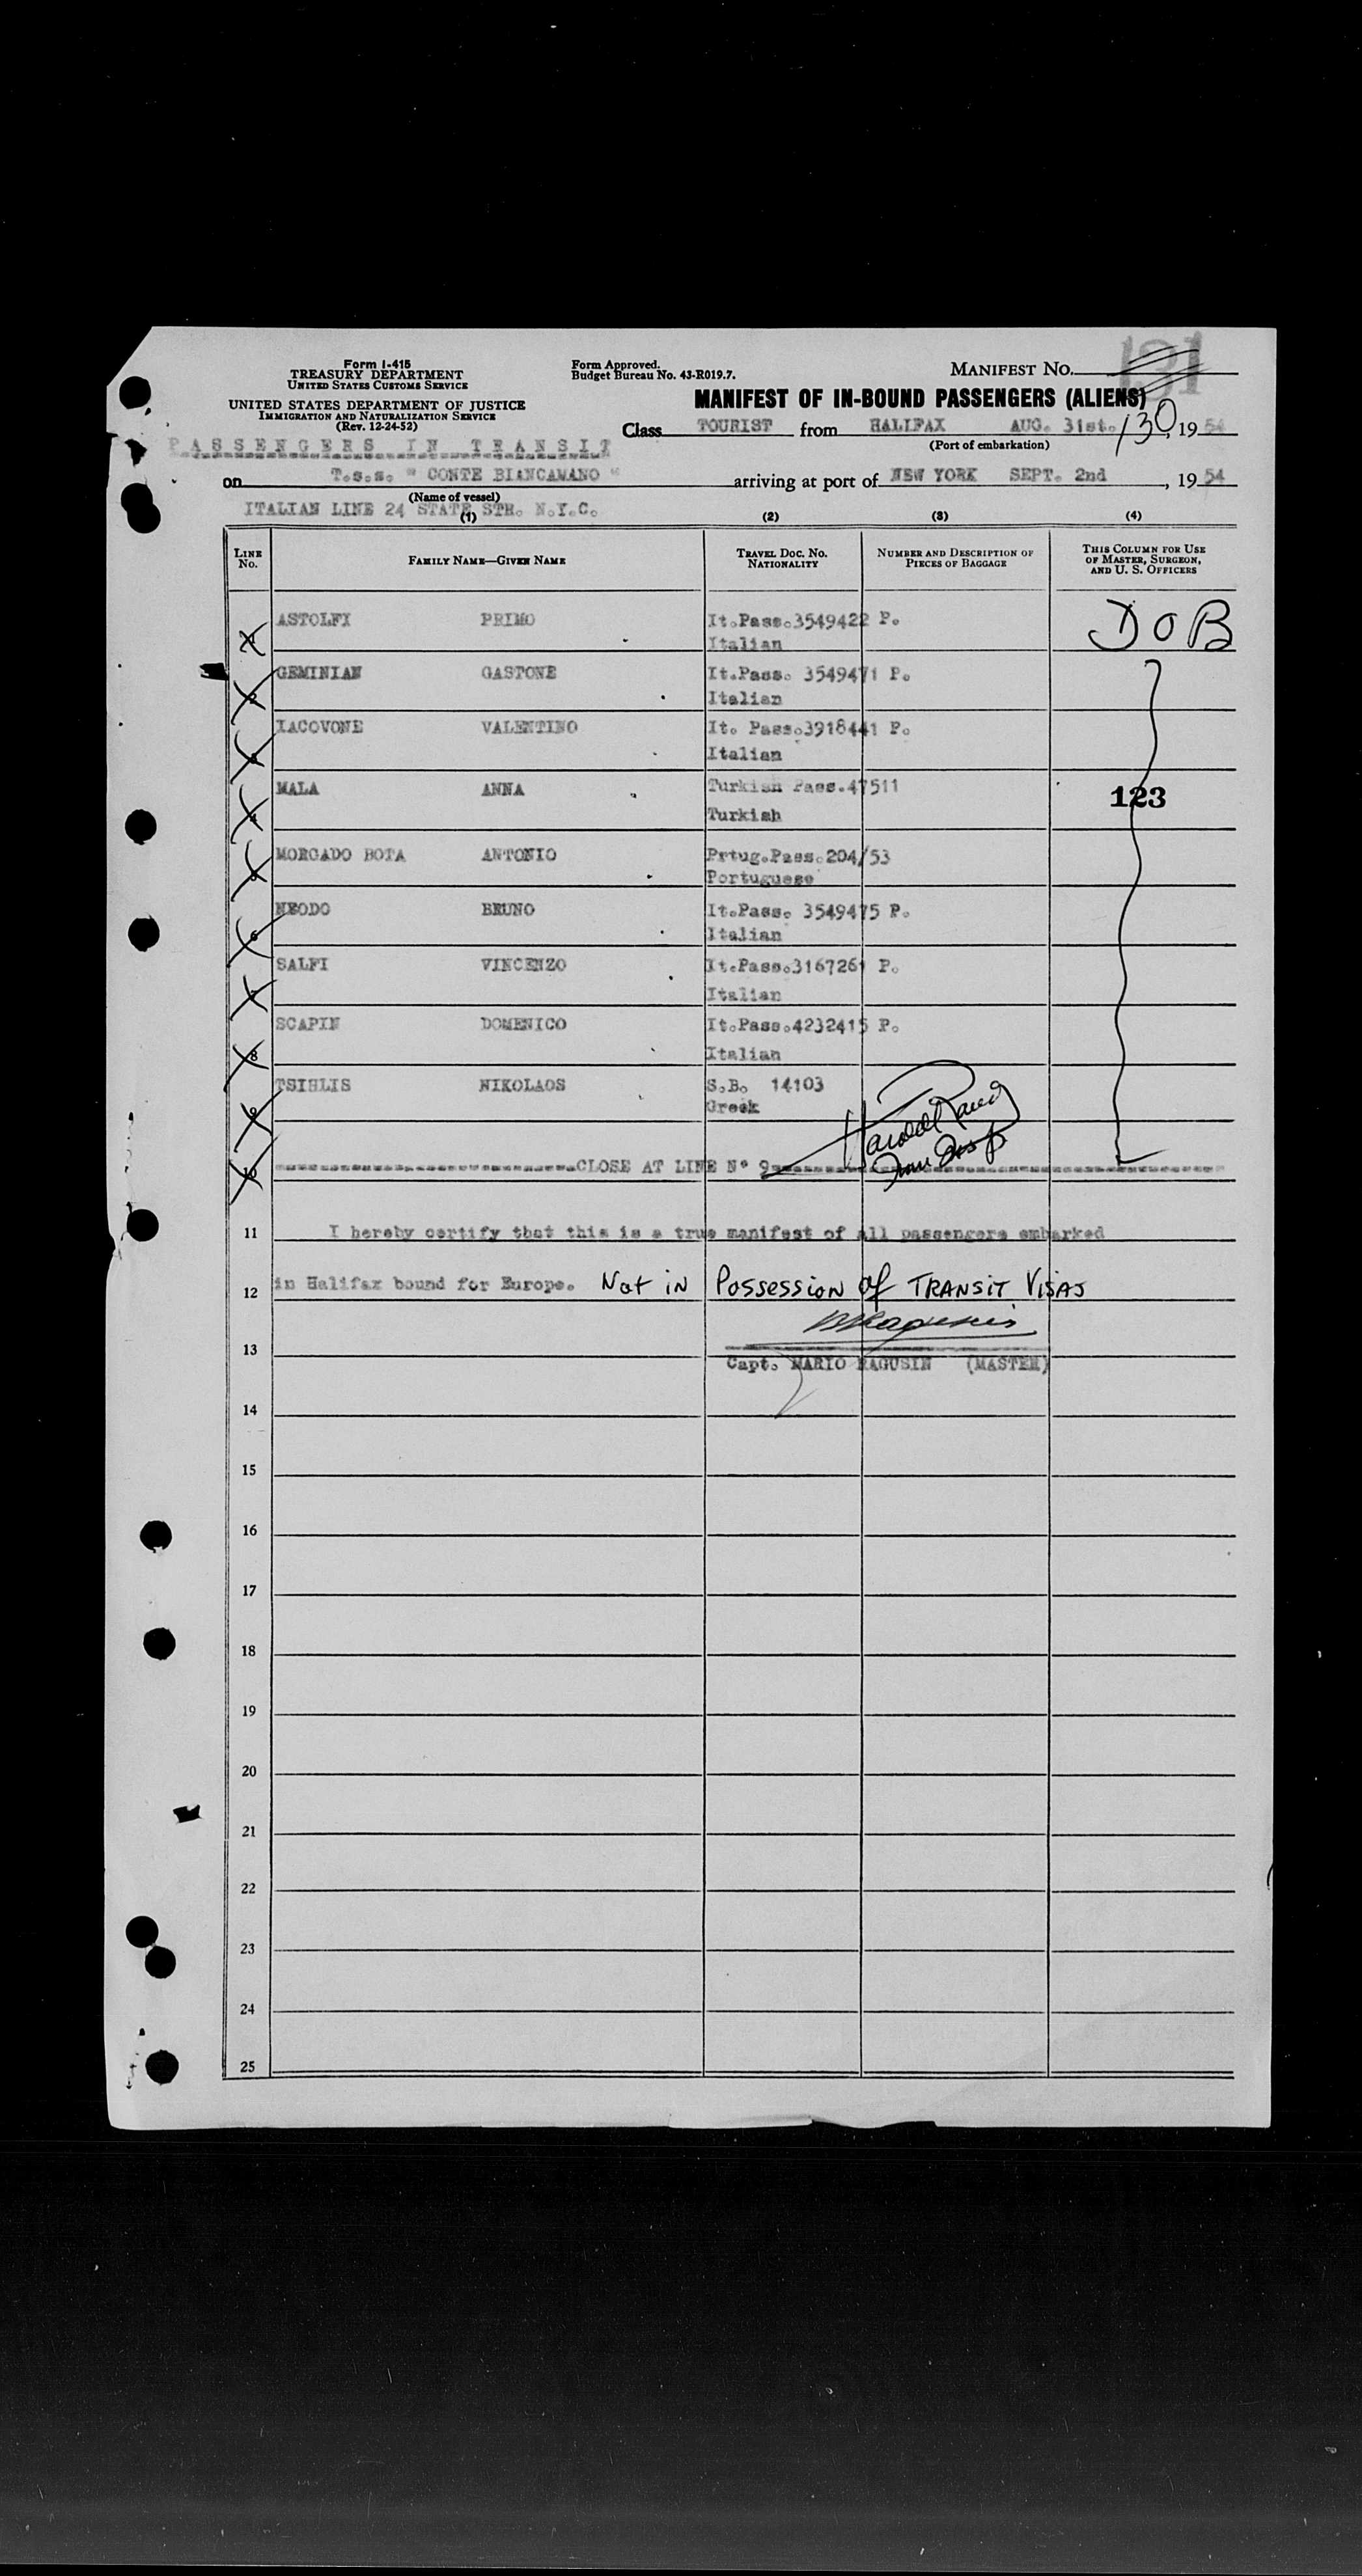 Form I-415
TREASURY DEPARTMENT
UNITED STATES CUSTOMS SERVICE
UNITED STATES DEPARTMENT OF JUSTICE
IMMIGRATION AND NATURALIZATION SERVICE
(Rev. 12-24-52)
Form Approved.
Budget Bureau No. 43-R019.7.
MANIFEST No. 131
MANIFEST OF IN-BOUND PASSENGERS (ALIENS)
130
Class TOURIST from HALIFAX AUG. 31st. , 19 54
(Port of embarkation)
PASSENGERS IN TRANSIT
on T.s.s. " CONTE BIANCAMANO " arriving at port of NEW YORK SEPT. 2nd , 19 54
(Name of vessel)
ITALIAN LINE 24 STATE STR. N.Y.C.
(1) (2) (3) (4)
LINE No. FAMILY NAME—GIVEN NAME TRAVEL DOC. No. NATIONALITY NUMBER AND DESCRIPTION OF PIECES OF BAGGAGE THIS COLUMN FOR USE OF MASTER, SURGEON, AND U. S. OFFICERS
ASTOLFI PRIMO It.Pass.3549422 P. D O B
Italian
2 GEMINIAN GASTONE It.Pass. 3549471 P.
Italian
3 IACOVONE VALENTINO It. Pass.3918441 P.
Italian
4 MALA ANNA Turkish Pass.47511 123
Turkish
5 MORGADO BOTA ANTONIO Prtug.Pass.204/53
Portuguese
6 NEODO BRUNO It.Pass. 3549475 P.
Italian
7 SALFI VINCENZO It.Pass.3167261 P.
Italian
8 SCAPIN DOMENICO It.Pass.4232415 P.
Italian
9 TSIHLIS NIKOLAOS S.B. 14103
Greek
Harold
10 CLOSE AT LINE N° 9
11 I hereby certify that this is a true manifest of all passengers embarked
12 in Halifax bound for Europe. Not in Possession of TRANSIT VISAS
13
Capt. MARIO RAGUSIN (MASTER)
14
15
16
17
18
19
20
21
22
23
24
25